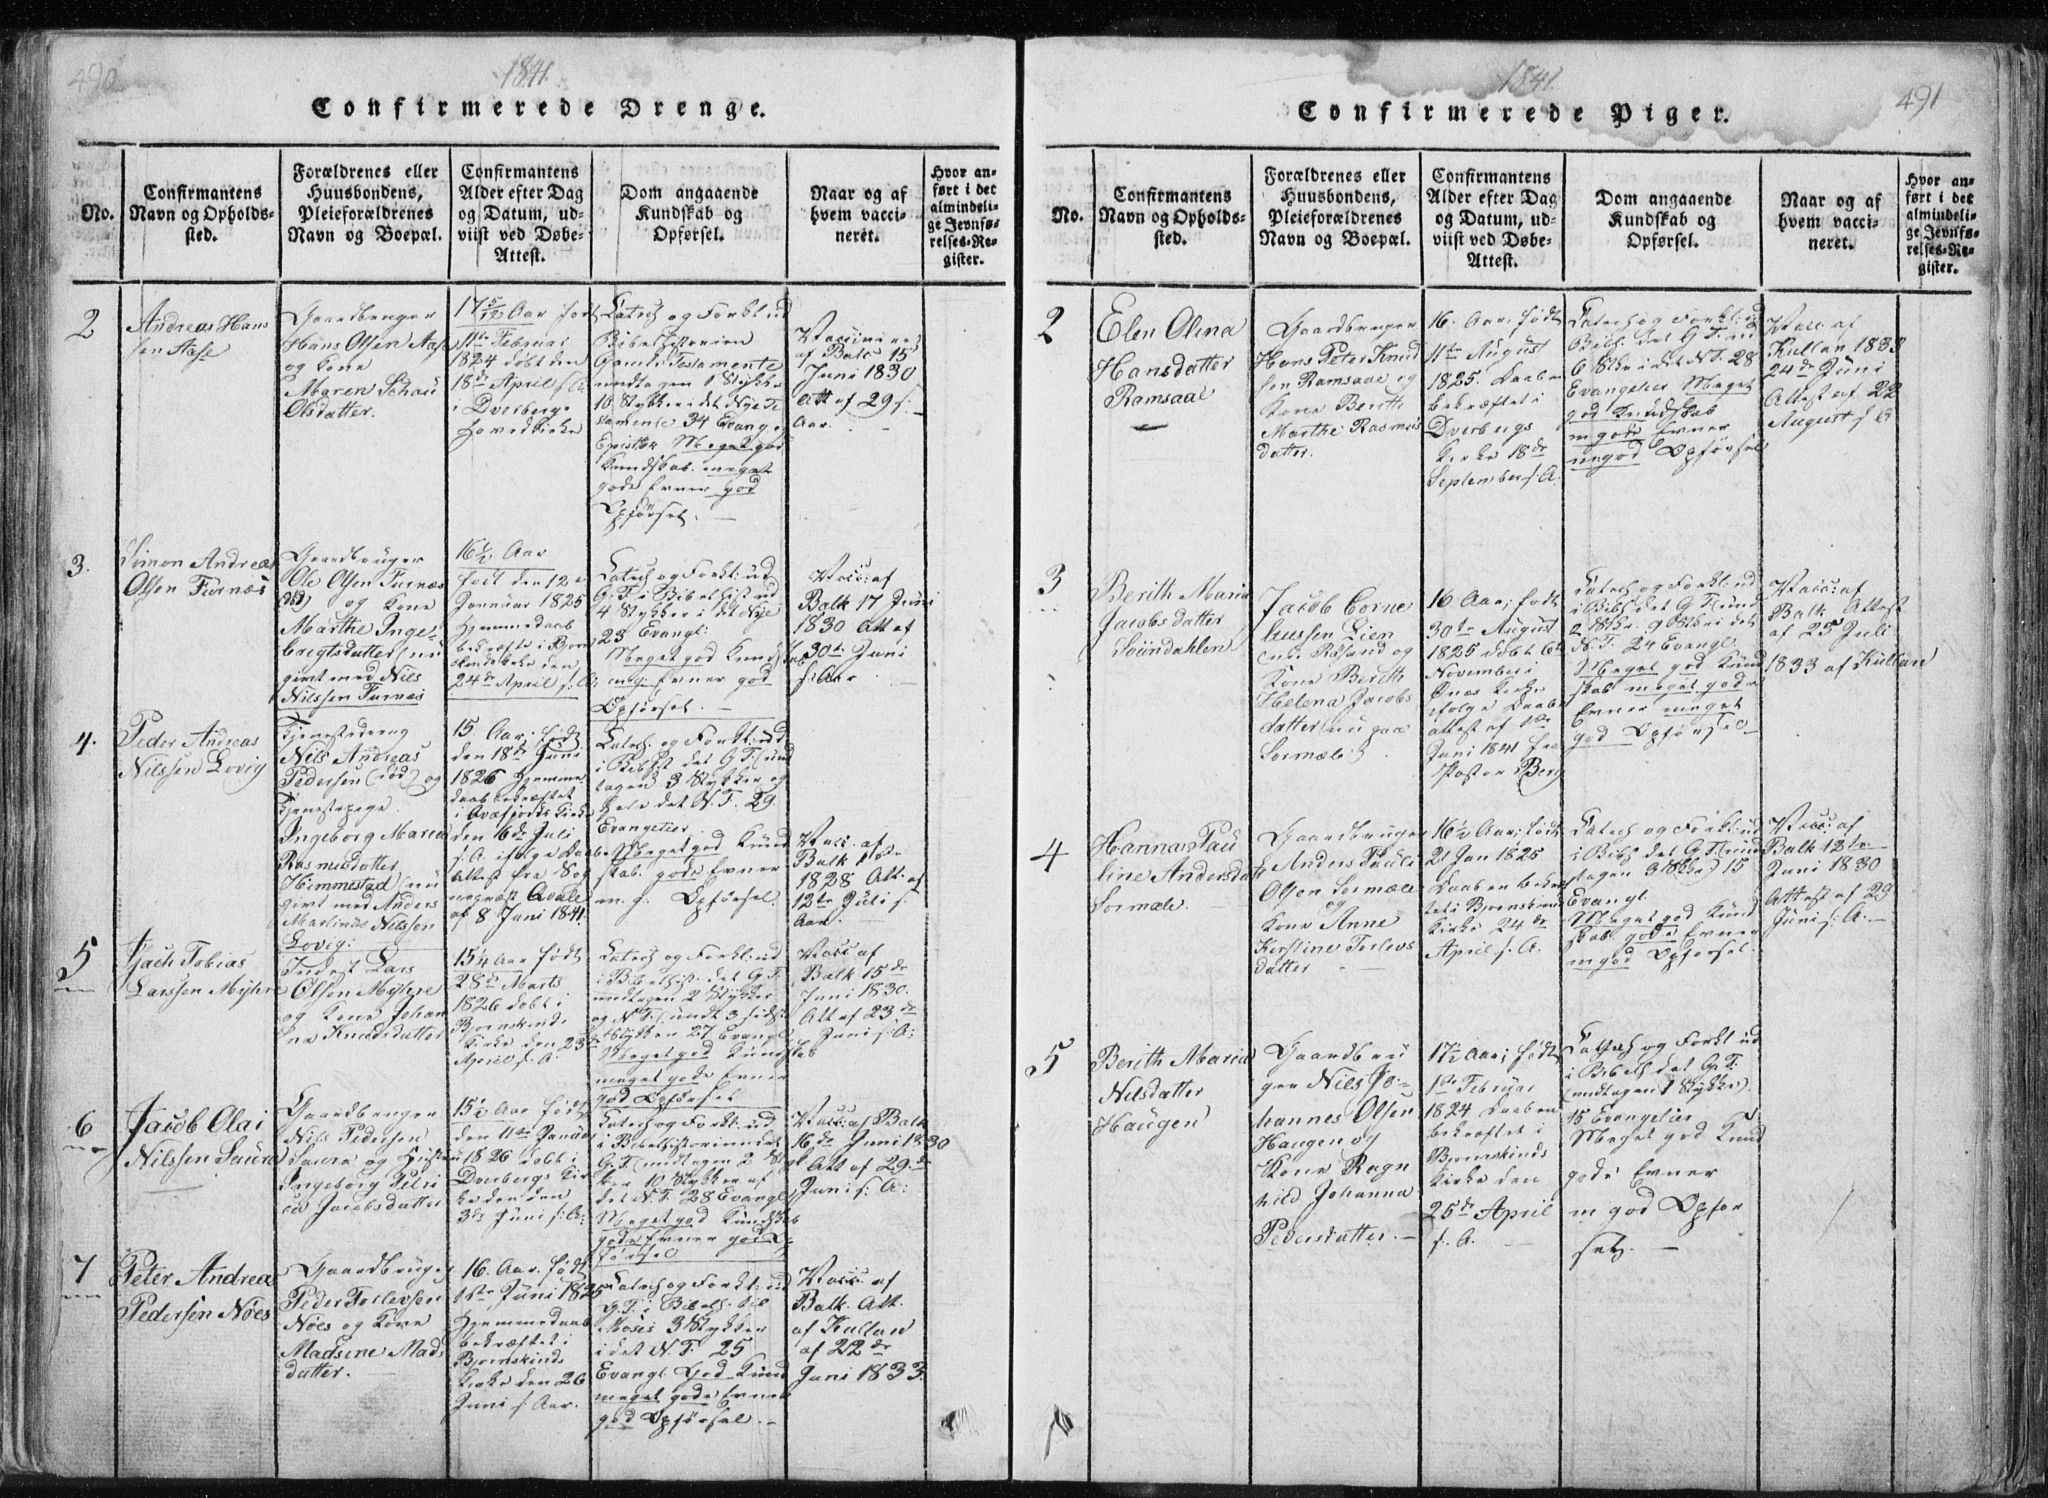 490
1841.
Confirmerede Drenge.
No.
Confirmantens
Navn og Opholds-
sted.
Forældrenes eller
Huusbondens,
Pleieforældrenes
Navn og Boepæl.
Confirmantens
Alder efter Dag
og Datum, ud-
viist ved Døbe-
Attest.
Dom angaaende
Kundskab og
Opførsel.
Naar og af
hvem vacci-
neret.
Hvor an-
ført i det
almindeli-
ge Jevnfø-
relses-Re-
gister.
2
Andreas Hans
sen Aase
Gaardbruger
Hans Olsen Aase
og Kone
Maren Schau
Olsdatter.
17 5/12 Aar født
11te Februar
1824 døbt den
18de April s. A.
i Dverbergs
Hovedkirke
Catech og Forkl: ud
Bibelhistorien
Gamle Testamente
undtagen 1 Stykke
10 Stykker i det Nye Te
stamente 34 Evang. og
Epistler Meget god
Kundskab. meget
gode Evner god
Opførsel. —
Vaccineret
af Balk 15
Juni 1830
Att af 29 s:
Aar. —
3.
Simon Andreas
Olsen Furnæs
Gaardbruger
Ole Olsen Furnæs
(død) og Kone
Marthe Inge-
brigtsdatter (nu
givt med Nils
Nilssen Furnæs
16 1/2 Aar
født den 12te
Januar 1825
Hjemmedaab
bekræftet i Bjørn
skinds Kirke den
24de April s. A.
Catech og Forkl: ud
G. T. i Bibelhist ud
4 Stykker i det Nye
23 Evangl:
Meget god Kundskab
mg. Evner god
Opførsel. —
Vacc: af
Balk 17 Juni
1830 Att af
30te Juni
s: Aar —
4.
Peder Andreas
Nilssen Lovig
Tjenestedreng
Nils Andreas
Pedersen (død) og
Tjenestepige
Ingeborg Maria
Rasmusdatter
Himmestad (nu
givt med Anders
Martinus Nilssen
Lovig:
15 Aar, født
den 18de Juni
1826 Hjemme
daab bekræftet
i Qvæfjords Kirke
den 16de Juli
s. A. ifølge Daabs
Attest fra Sog
nepræst Qvale
af 8 Juni 1841.
Catech. og Forkl: ud
i Bibhst det G T. (und
tagen 3 Stykker og
hele det N. T. 29
Evangelier.
Meget god Kund
skab. gode Evner
m. g. Opførsel.
Vacc: af
Balk 1ste
1828 Att: af
12te Juli s:
Aar.
5
Zach Tobias
Larssen Myhre
Inderst Lars
Olsen Myhre
og Kone Johan
na Knudsdatter
15 1/4 Aar født
28de Marts
1826 døbt i
Bjørnskinds
Kirke den 23de
April s. A:
Catech og Forkl: ud
i Bibelhist: det G. T.
undtagen 2 Stykker
og N. T. (undt 3 sidste
Stykker 27 Evangl
Meget god Kundskab
meget gode Evner
god Opførsel
Vacc: af
Balk 15de
Juni 1830.
Att af 23de
Juni s: A:
6
Jacob Olai
Nilssen Saura
Gaardbruger
Nils Pedersen
Saura og Hustru
Ingeborg Petri
ca Jacobsdatter
15 1/2 Aar født
den 11te Januar
1826 døbt i
Dverbergs Kir
ke den den
3de Juni s: A:
Catech og Forkl: ud
i Bibelhistorien det
G. T. (undtagen 2 Styk
ker 10 Stykker af
det N. T. 28 Evangl
Meget god Kundskab
gode Evner god Op
førsel
Vacc: af Balk
16de Juni 1830
Att af 29de
Juni s: A:
7
Peter Andreas
Pedersen Nöes
Gaardbruger
Peder Torlevsen
Nöes og Kone
Madsine Mads
datter. —
16. Aar. født
1ste Juni 1825
Hjemmedaab
bekræftet i
Bjørnskinds
Kirke den 26
Juni s: Aar.
Catech og Forkl: ud
G. T. i Bibelh. til
Moses 3 Stykker
i det N. T. 25
Evangl. God Kund
meget gode Evner
god Opførsel. —
Vacc: af
Balk. Att.
af Kullan
af 22de
Juni 1833.
491
1841.
Confirmerede Piger.
No.
Confirmantens
Navn og Opholds-
sted.
Forældrenes eller
Huusbondens,
Pleieforældrenes
Navn og Boepæl.
Confirmantens
Alder efter Dag
og Datum, ud-
viist ved Døbe-
Attest.
Dom angaaende
Kundskab og
Opførsel.
Naar og af
hvem vacci-
neret.
Hvor an-
ført i det
almindeli-
ge Jevnfø-
relses-Re-
gister.
2
Elen Olina
Hansdatter
Ramsaae
Gaardbruger
Hans Peter Knud
sen Ramsaae og
Kone Berith
Marthe Rasmus
datter.
16. Aar; født
11te August
1825. Daaben
bekræftet i
Dverbergs
Kirke 18de
September s: A.
Catech og Forkl: ud
Bibh. det G T. ud
6 Stkr i det N T. 28
Evangelier Meget
god Kundskab
m gode Evner
m god Opførsel
Vacc: af
Kullan 1833
24de Juni
Attest af 22
August s A
3
Berith Maria
Jacobsdatter
Soündahlen
Jacob Corne
liussen Lien
og
Kone Berith
Helena Jacobs
datter (nu paa
Sormæle)
16 Aar; født
30te August
1825 døbt 6te
November i
Øxnes Kirke
ifølge Daabs
attest af 1ste
Juni 1841 fra
Pastor Berg
Catech og Forkl: ud
i Bibh: det G T. (und
2 Stkr. 9 Stkr i det
N. T. 24 Evangl.
Meget god Kund
skab meget gode
Evner meget
god Opførsel
Vacc: af
Balk Attest
af 25 Juli
1833 af Kullan
4
Hanna Pau
line Andersdatr
Sormæle.
Gaardbruger
Anders Pauli
Olsen Sormæle
og
Kone Anne
Kirstine Torlevs
datter —
16 1/2 Aar; født
21 Jan 1825
Daaben bekræf
tet i Bjørnskinds
Kirke 24de
April s. A.
Catech og Forkl: ud
i Bibh det G T. (und
tagen 3 Stkr) 15
Evangl.
Meget god Kund
skab gode Evner
m god Opførsel.
Vacc: af
Balk 12te
Juni 1830
Attest af 29
Juni s: A. —
5
Berith Maria
Nilsdatter
Haügen
Gaardbru
ger Nils Jo-
hannes Olsen
Haugen og
Kone Ragn
hild Johanna
Pedersdatter. —
17 1/2 Aar; født
1ste Februar
1824 Daaben
bekræftet i
Bjørnskinds
Kirke den
25de April
s. A.
Catech og Forkl ud
i Bibh det G. T:
(undtagen 1 Stykke).
15 Evangelier
Meget god Kund
gode Evner
m god Opfør
sel. —